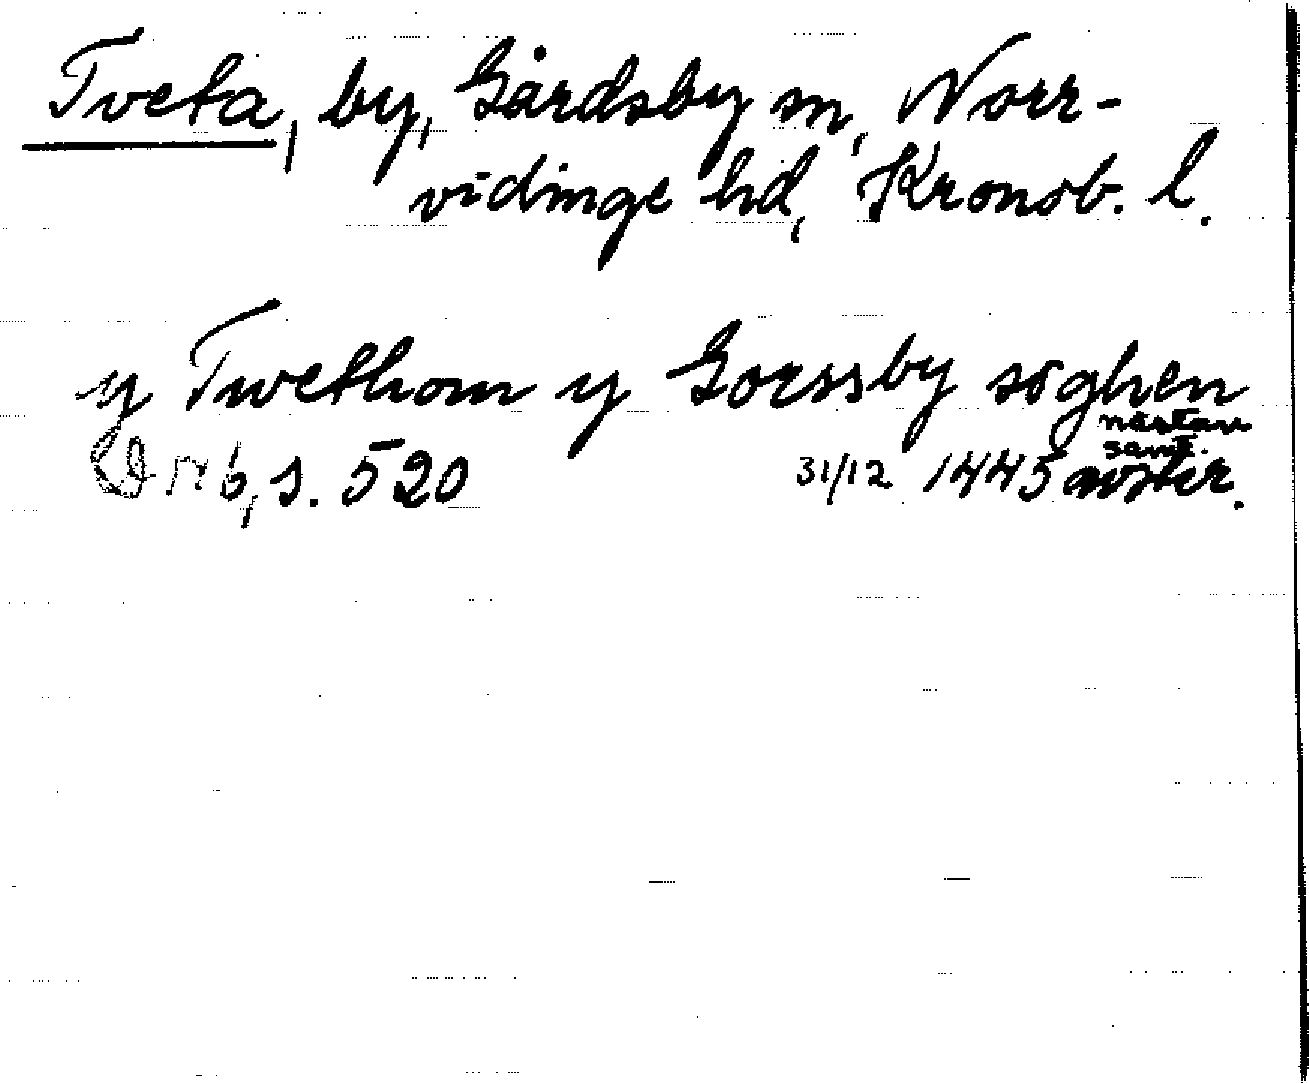 Tveta, by, Gårdsby sn, Norr-
vidinge hd, Kronob. l.
y Twethom y Gorssby söghen
DN 6, s. 520 31/12 1445 nästan samt. avskr.